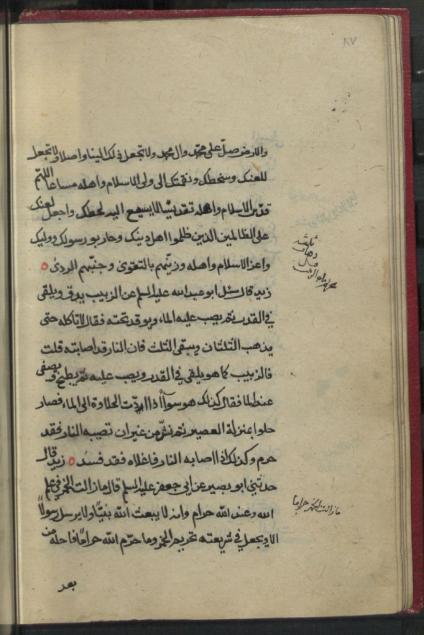 ٨٧
والارض صلّ على محمّد وال محمد ولا تجعل ذلك الينا واصلا ولا تجعل
للعنك وسخطك ونقمتك الى ولى الاسلام واهله مساغا اللهم
قدّس الاسلام واهله تقديسا لا يسيغ اليه لسخطك واجعل لعنك
على الظالمين الذين ظلموا اهل دينك وحاربوا رسولك ووليك
واعز الاسلام واهله وزيّنهم بالتقوى وجنّبهم الردى
زيد قال سئل ابو عبد الله عليه السلم عن الزبيب يدق ويلقى
فى القدر ثم يصب عليه الماء ويوقد تحته فقال لا تاكله حتى
يذهب الثلثان ويبقى الثلث فان النار قد اصابته قلت
فالزبيب كما هو يلقى فى القدر ويصب عليه ثم يطبخ ويصفى
عنه الماء فقال كذلك هو سواء اذا ادّت الحلاوة الى الماء فصار
حلوا بمنزلة العصير ثم نش من غير ان تصيبه النار فقد
حرم وكذلك اذا اصابه النار فاغلاه فقد فسد زيد قال
حدثنى ابو بصير عن ابى جعفر عليه السلم قال ما زالت الخمر فى علم
الله وعند الله حرام وانه لا يبعث الله نبيّا ولا يرسل رسولا
الا ويجعل فى شريعته تحريم الخمر وما حرّم الله حراما فاحله من
بعد
ما زالت الخمر حراما